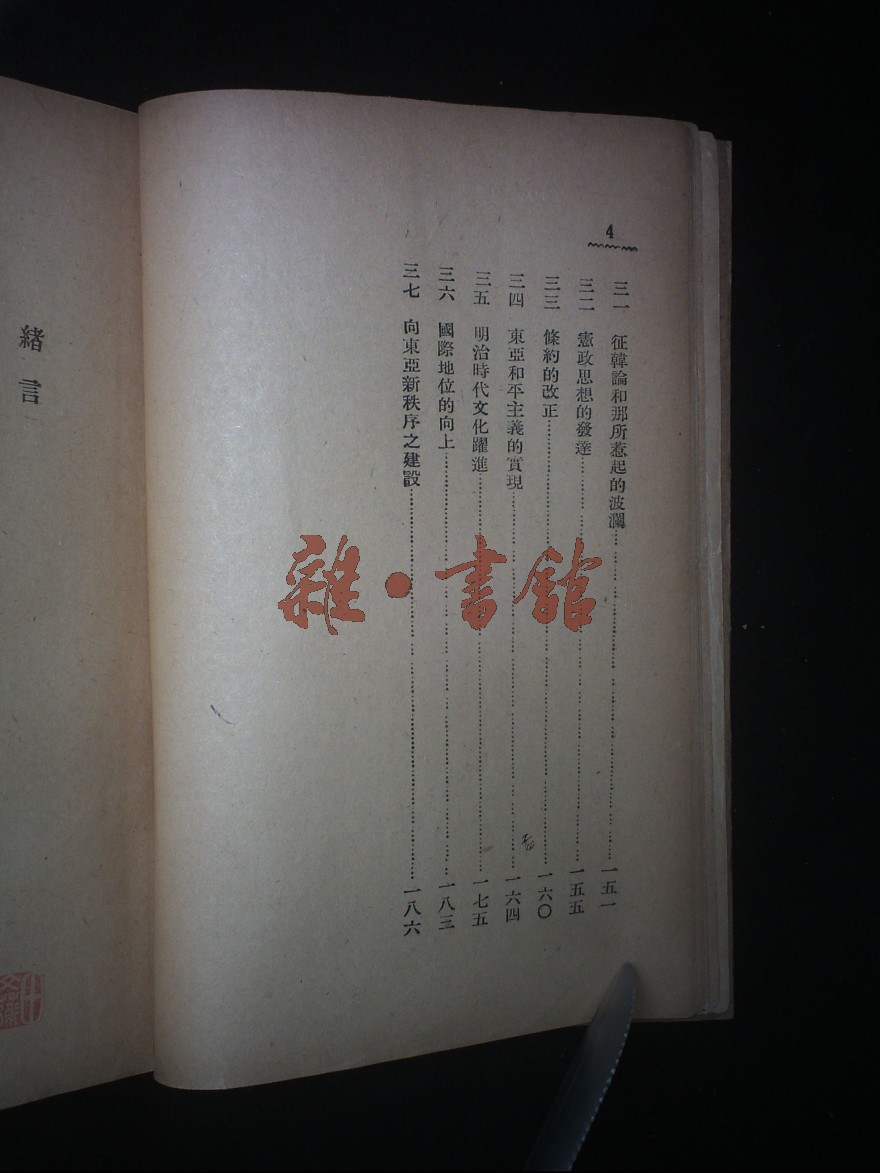 4
三一　征韓論和那所惹起的波瀾……一五一
三二　憲政思想的發達……一五五
三三　條約的改正……一六〇
三四　東亞和平主義的實現……一六四
三五　明治時代文化躍進……一七五
三六　國際地位的向上……一八三
三七　向東亞新秩序之建設……一八六
雜·書館
緒言